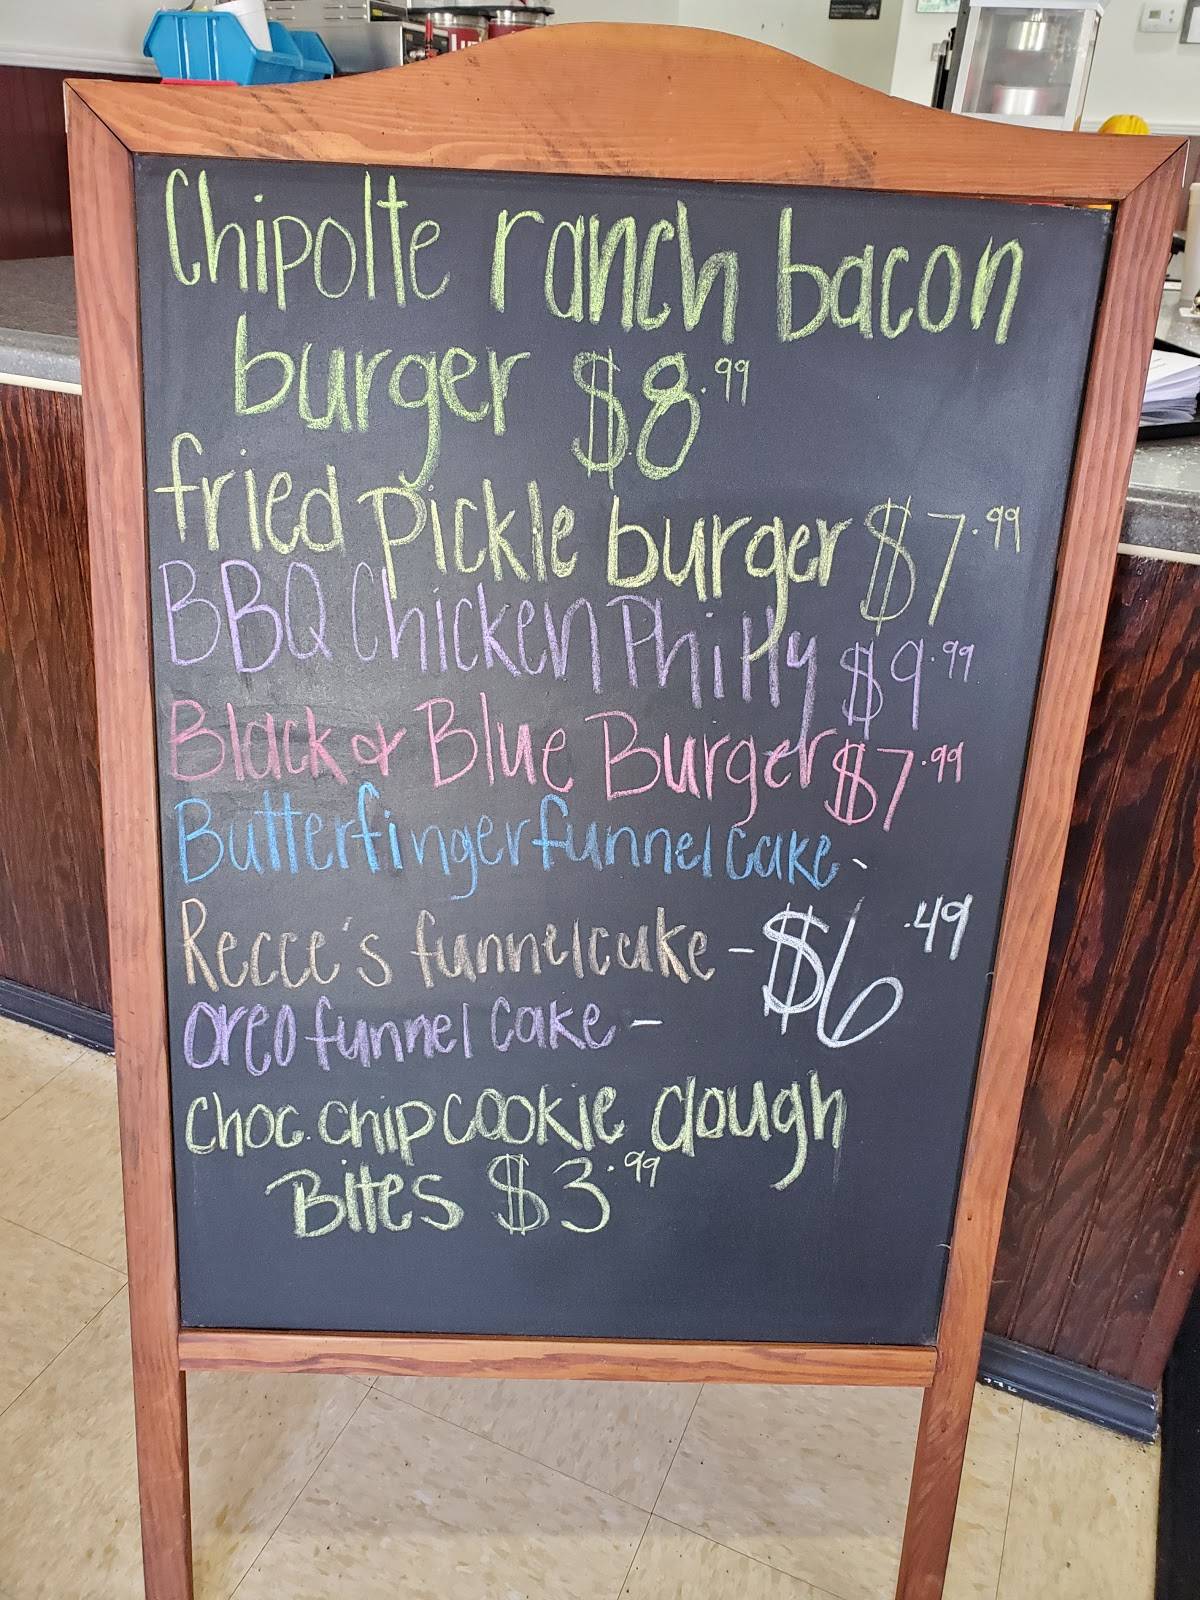 Chipolte ranch bacon
burger $8.99
fried Pickle burger $7.99
BBQ Chicken Philly $9.99
Black & Blue Burger $7.99
Butterfinger funnel cake -
Recce's funnel cake - $6.49
Oreo funnel cake -
Choc. chip cookie dough
Bites $3.99